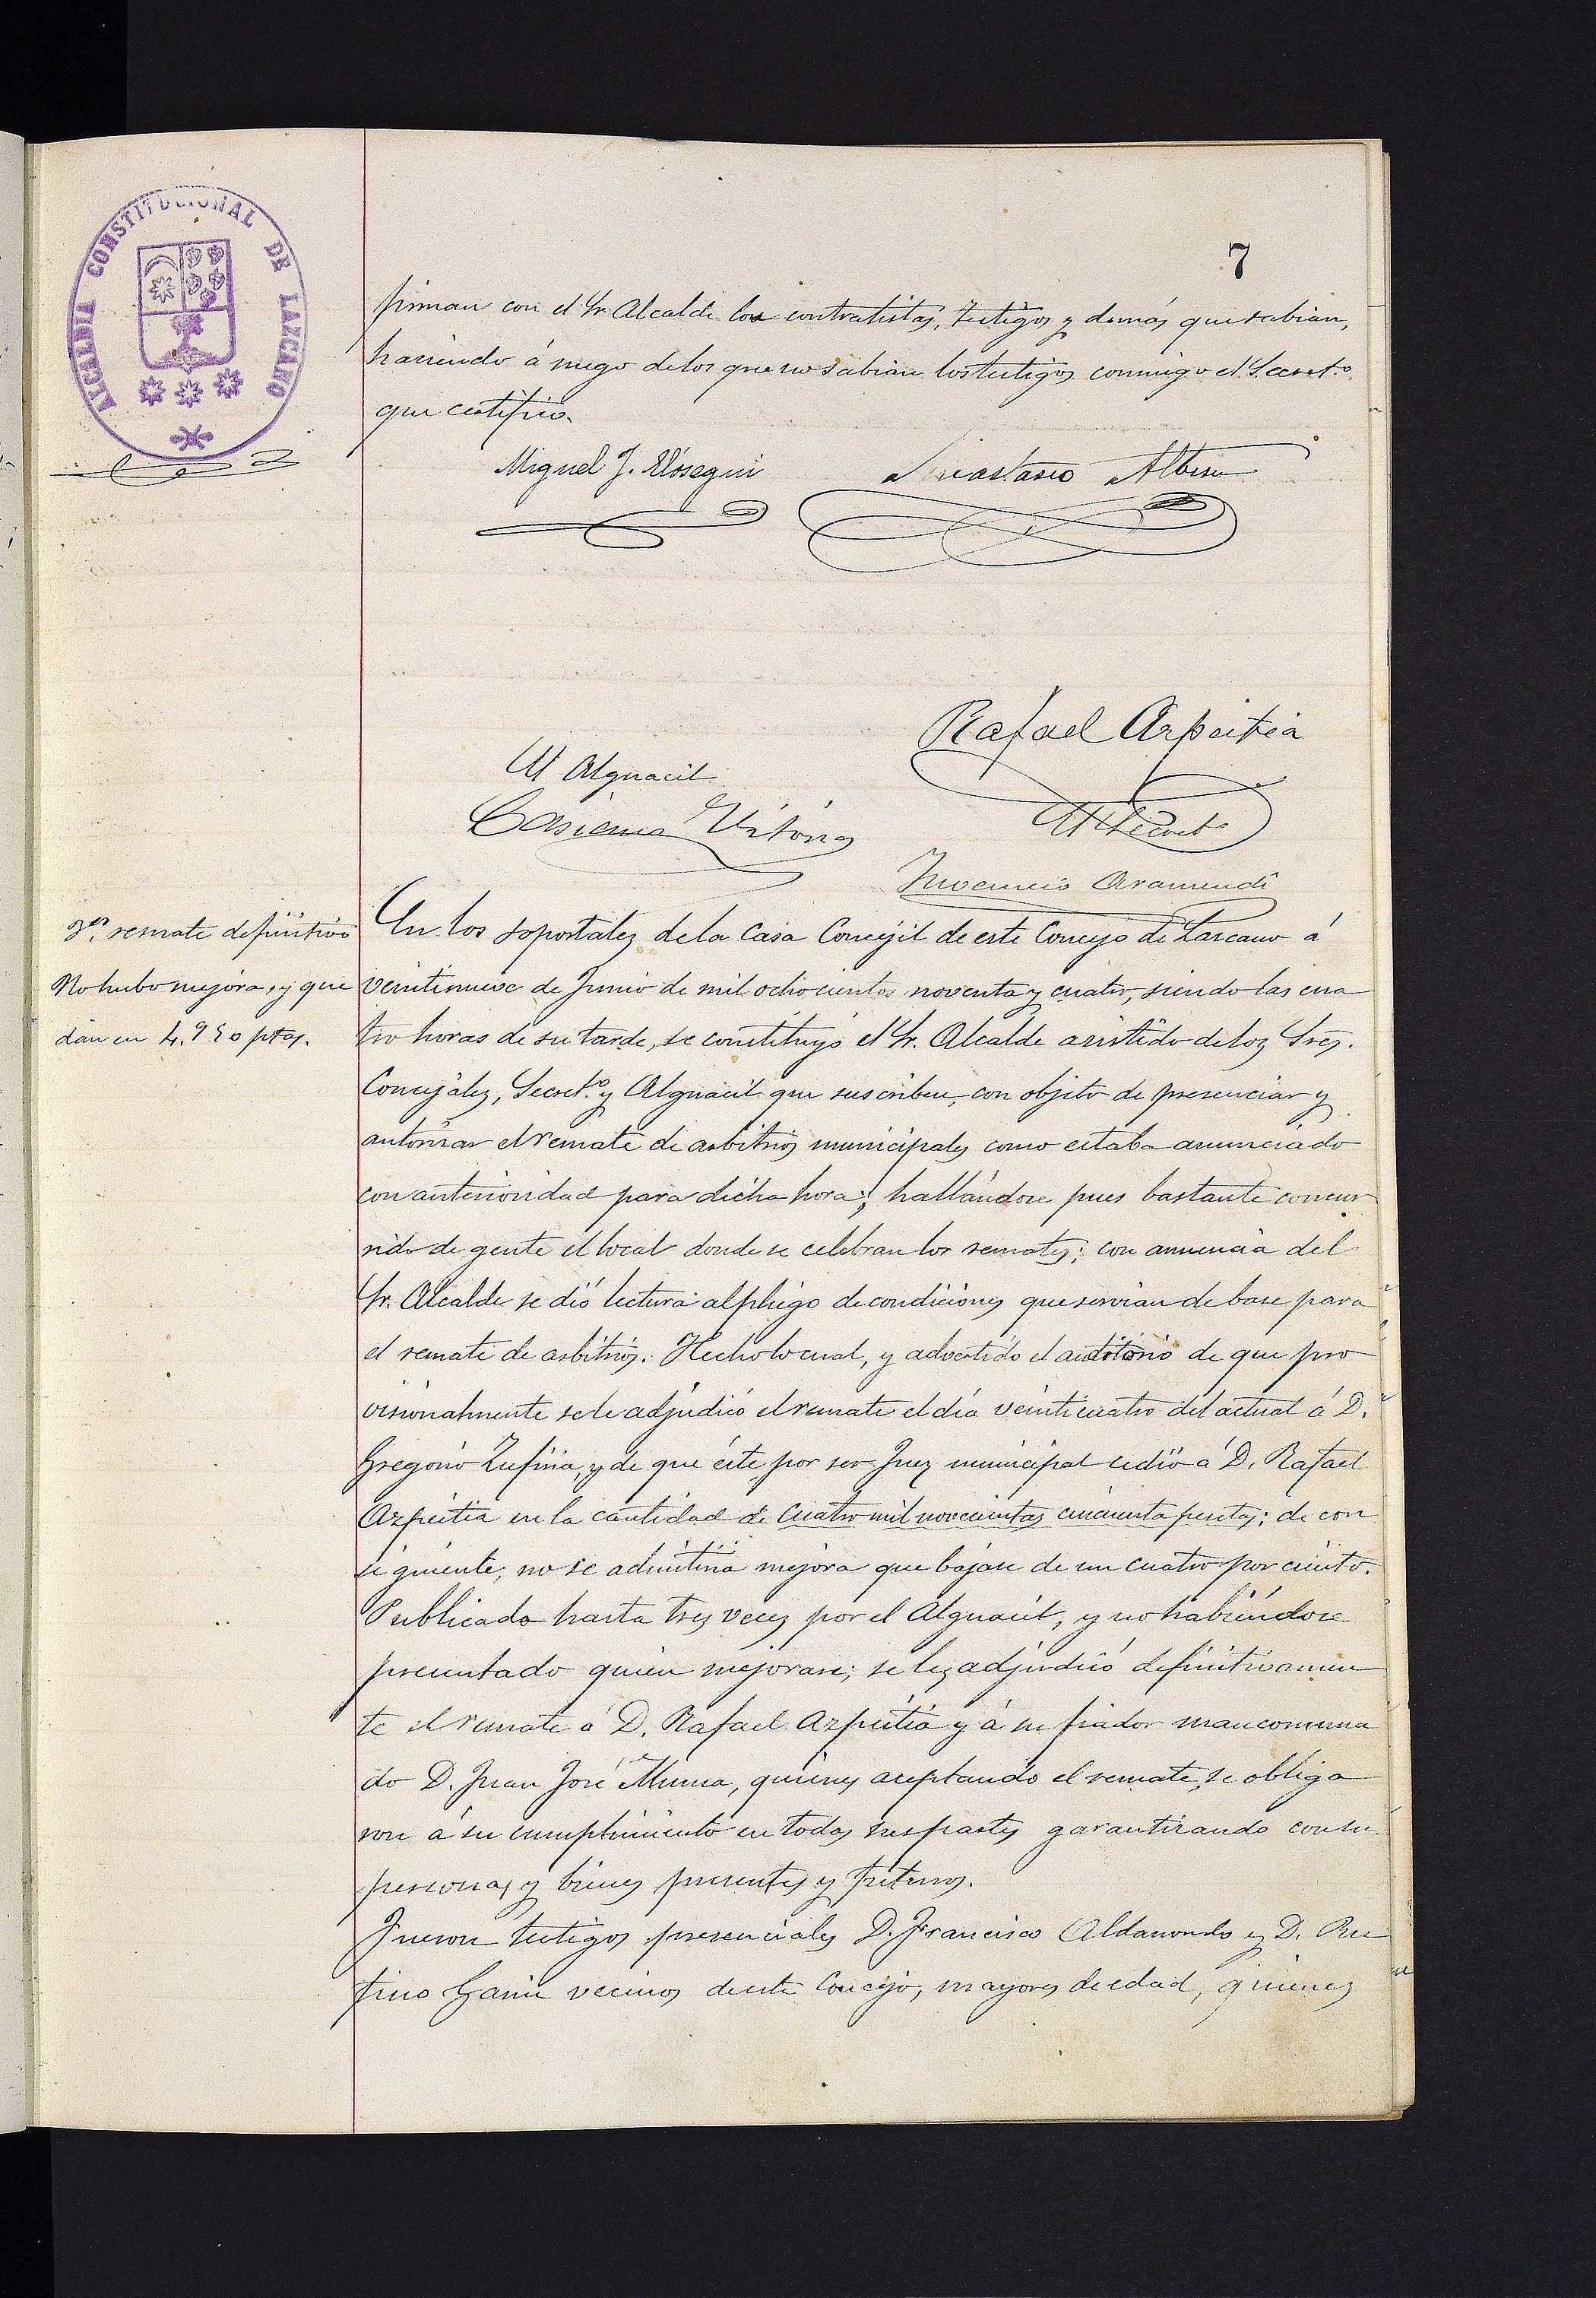 7
ALCALDIA CONSTITUCIONAL DE LAZCANO
firman con el Sr. Alcalde los contratistas, testigos y demás que sabian,
haciendo á ruego de los que no sabian los testigos conmigo el Secret.º
que certifico.
Miguel J. Elósegui
Anastasio Albisu
Rafael Azpeitia
El Alguacil
Casiano Vitoria
El Secret.º
Inocencio Aramendi
remate definitivo
No hubo mejora, y que
dan en 4.950 ptas.
En los soportales de la Casa Concejil de este Concejo de Lazcano á
veintinueve de Junio de mil ochocientos noventa y cuatro, siendo las cua
tro horas de su tarde, se constituyó el Sr. Alcalde asistido de los Sres.
Concejales, Secret.º y Alguacil que suscriben, con objeto de presenciar y
autorizar el remate de arbitrios municipales como estaba anunciado
con anterioridad para dicha hora; hallándose pues bastante concur
rido de gente el local donde se celebran los remates; con anuencia del
Sr. Alcalde se dió lectura al pliego de condiciones que servian de base para
el remate de arbitrios. Hecho lo cual, y advertido el auditorio de que pro
visionalmente se le adjudicó el remate el día veinticuatro del actual á D.
Gregorio Zufiria, y de que éste por ser Juez municipal cedió á D. Rafael
Azpeitia en la cantidad de cuatro mil novecientas cincuenta pesetas; de con
siguiente, no se admitiria mejora que bajase de un cuatro por ciento.
Publicado hasta tres veces por el Alguacil, y no habiéndose
presentado quien mejorase; se les adjudicó definitivamen
te el remate á D. Rafael Azpeitia y á su fiador mancomuna
do D. Juan José Munua, quienes aceptando el remate, se obliga
ron á su cumplimiento en todas sus partes garantizando con su
personas y bienes presentes y futuros.
Fueron testigos presenciales D. Francisco Aldanondo y D. Ru
fino Garin vecinos de este Concejo, mayores de edad, quienes